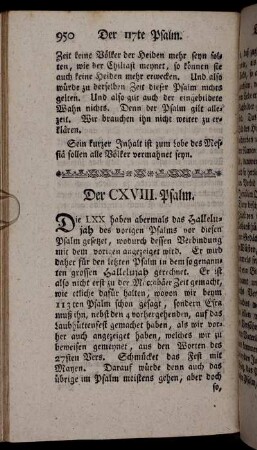 950 Der 117te Psalm.
Zeit keine Völker der Heiden mehr seyn sol-
ten, wie der Chiliast meynet, so können sie
auch keine Heiden mehr erwecken. Und also
würde zu derselben Zeit dieser Psalm nichts
gelten. Und also gilt auch der eingebildete
Wahn nichts. Denn der Psalm gilt alle-
zeit. Wir brauchen ihn nicht weiter zu er-
klären.
Sein kurzer Inhalt ist zum Lobe des Mes-
siä sollen alle Völker vermahnet seyn.
Der CXVIII. Psalm.
Die LXX haben abermals das Hallelu-
jah des vorigen Psalms vor diesen
Psalm gesetzet, wodurch dessen Verbindung
mit dem vorigen angezeiget wird. Er wird
daher für den letzten Psalm in dem so genann-
ten grossen Hallelujah gerechnet. Er ist
also nicht erst zu der Maccabäer Zeit gemacht,
wie etliche dafür halten, wovon wir beym
113ten Psalm schon gesagt, sondern Esra
muß ihn, nebst den 4 vorhergehenden, auf das
Laubhüttenfest gemachet haben, als wir vor-
her auch angezeiget haben, welches wir zu
beweisen gemeynet, aus den Worten des
27sten Vers. Schmücket das Fest mit
Mayen. Darauf würde denn auch das
übrige im Psalm meistens gehen, aber doch
so,